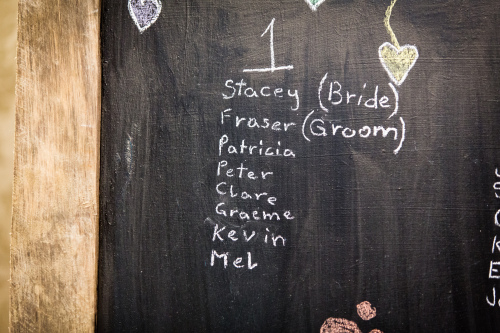 1
Stacey (Bride)
Fraser (Groom)
Patricia
Peter
Clare
Graeme
Kevin
Mel